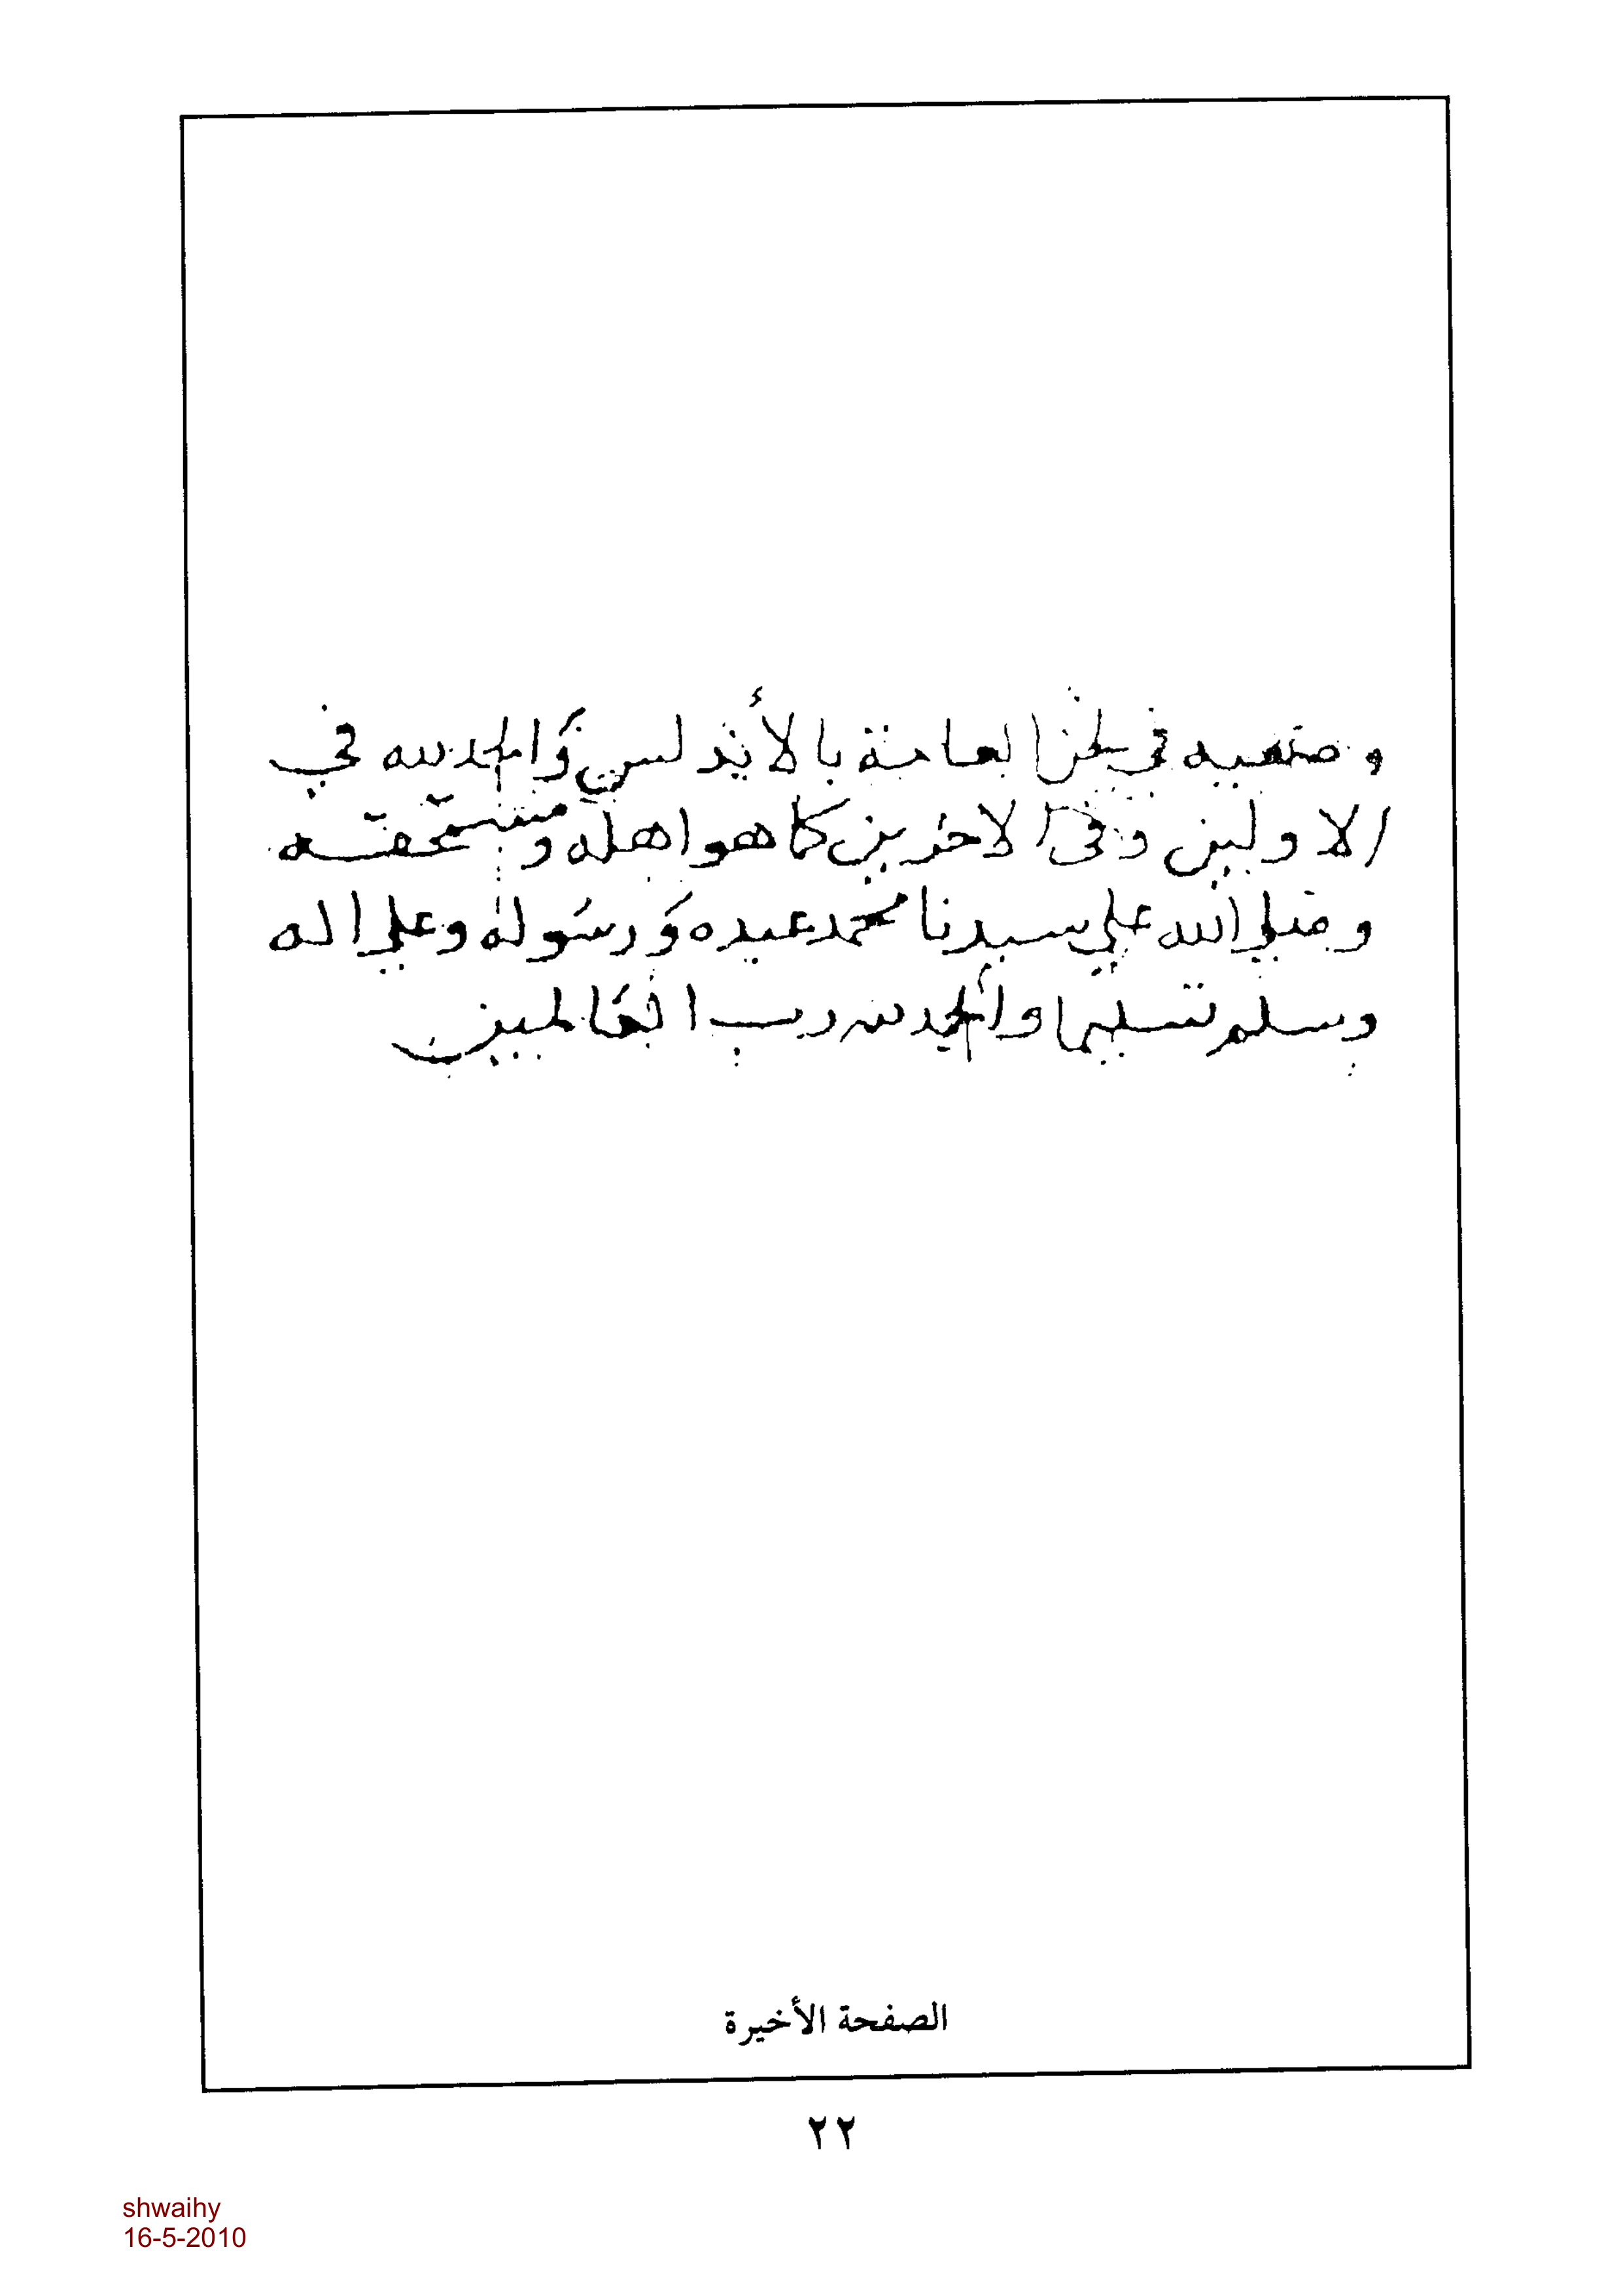 في لحن العامة بالأندلس والحمد لله في
الاولين وفي الاخرين كما هو اهله ومستحقه
وصلى الله على سيدنا محمد عبده ورسوله وعلى اله
وسلم تسليما والحمد لله رب العالمين
الصفحة الأخيرة
٢٢
shwaihy
16-5-2010